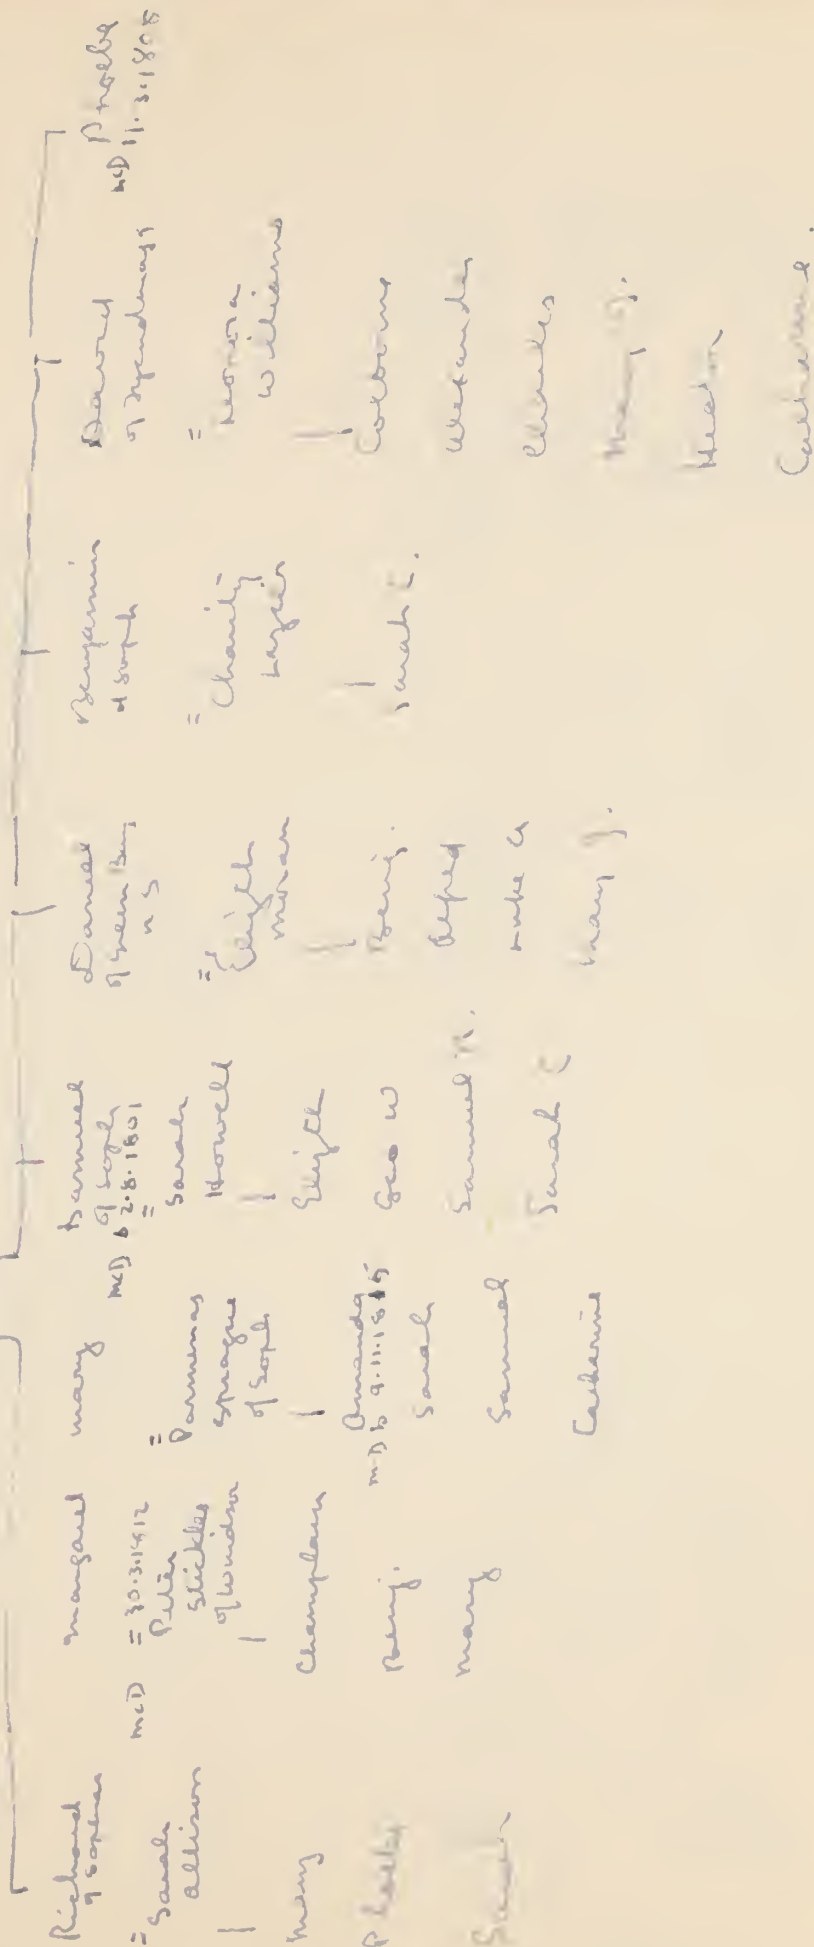 Richard
of Sophias
=
Sarah
Allison
Mary
Phoebe
Sarah
Margaret
McD = 30.3.1812
Peter
Stickles
of Windsor
Champlain
Benj.
Mary
Mary
=
Parmenas
Sprague
of Soph
Amanda
McD b 9.11.1815
Sarah
Samuel
Catharine
Samuel
of Soph
McD b 2.8.1801
=
Sarah
Howell
Elizth
Geo W
Samuel
Sarah E
Daniel
of Green Bay
=
Elizth
Moran
Benj.
Alfred
Luke A
Mary J.
Benjamin
of Soph
=
Charity
Lazier
Sarah E.
David
of Tyendinaga
=
Leonora
Williams
Colborne
Alexander
Charles
Mary J.
Catherine.
McD Phoebe
11.3.1808